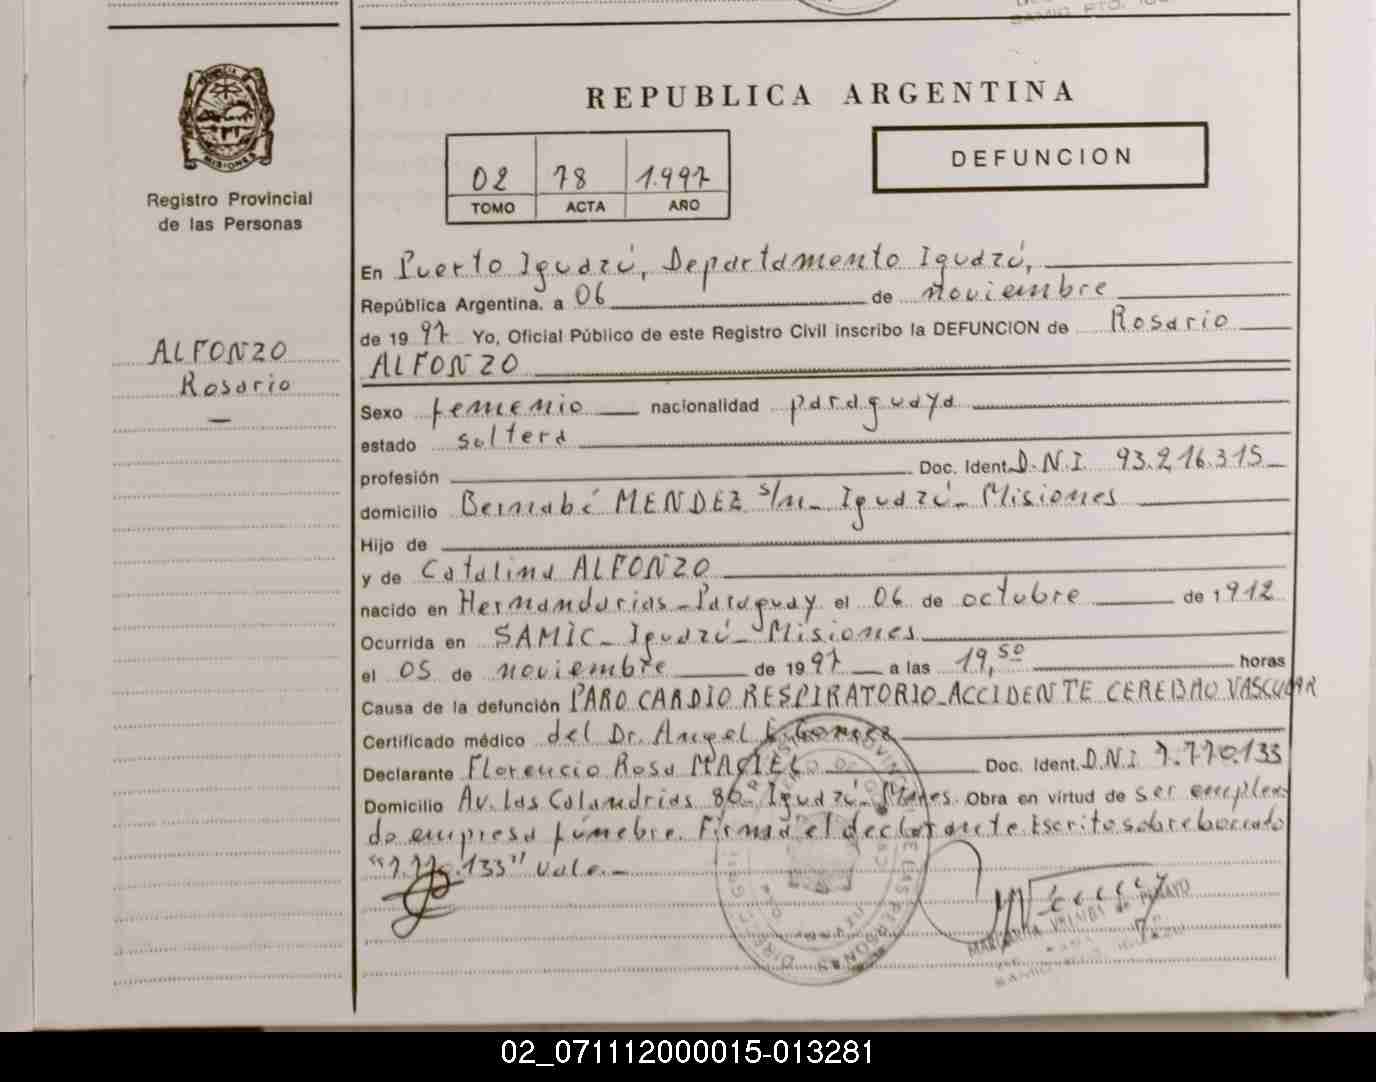 REPUBLICA ARGENTINA
DEFUNCION
02 78 1.997
TOMO ACTA AÑO
MISIONES
Registro Provincial
de las Personas
ALFONZO
Rosario
En Puerto Iguazú, Departamento Iguazú,
República Argentina, a 06 de noviembre
de 19 97 Yo, Oficial Público de este Registro Civil inscribo la DEFUNCION de Rosario
ALFONZO
Sexo femenio nacionalidad paraguaya
estado soltera
profesión Doc. Ident. D.N.I. 93.216.315
domicilio Bernabé MENDEZ s/n - Iguazú - Misiones
Hijo de
y de Catalina ALFONZO
nacido en Hernandarias - Paraguay el 06 de octubre de 1912
Ocurrida en SAMIC - Iguazú - Misiones
el 05 de noviembre de 19 97 a las 19,50 horas
Causa de la defunción PARO CARDIO RESPIRATORIO - ACCIDENTE CEREBRO VASCULAR
Certificado médico del Dr. Angel E. Gomez
Declarante Florencio Rosa MACIEL Doc. Ident. D.N.I 7.770.133
Domicilio Av. Las Calandrias 80 - Iguazú - Mnes. Obra en virtud de ser emplea
do empresa fúnebre. Firma el declarante. Escrito sobreborrado
"7.770.133" Vale. -
02_071112000015-013281